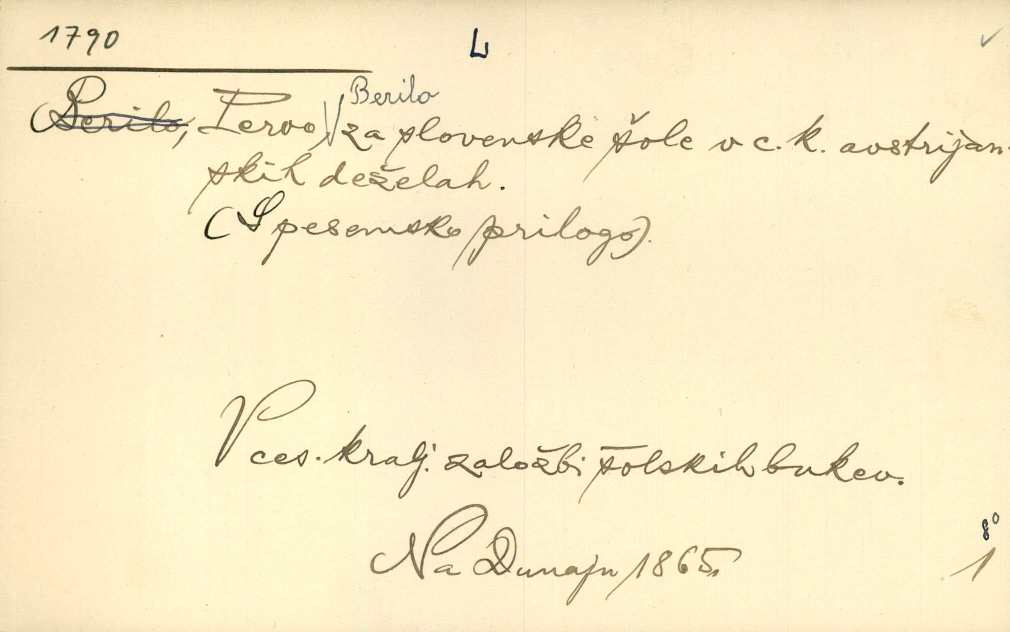 1790
L
(Berilo, Pervo) Berilo za slovenske šole v c. k. avstrijan-
skih deželah.
(S pesemsko prilogo).
V ces. kralj. založbi šolskih bukev.
Na Dunaju 1865.
8°
1